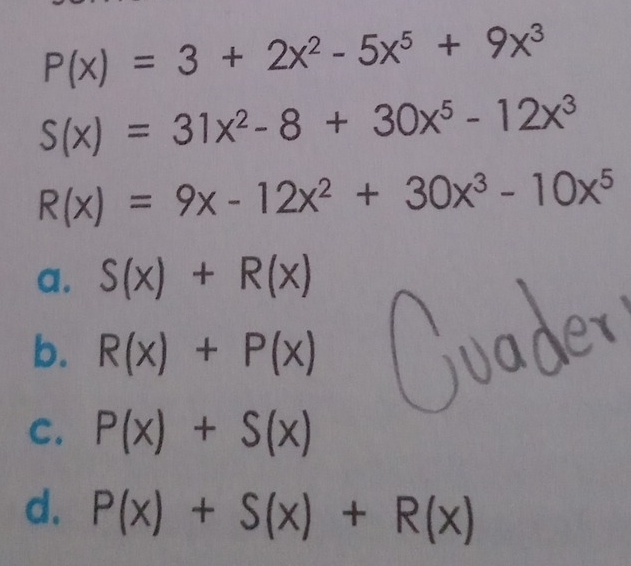 P(x) = 3 + 2x² - 5x⁵ + 9x³
S(x) = 31x² - 8 + 30x⁵ - 12x³
R(x) = 9x - 12x² + 30x³ - 10x⁵
a. S(x) + R(x)
b. R(x) + P(x)
c. P(x) + S(x)
d. P(x) + S(x) + R(x)
Cuader